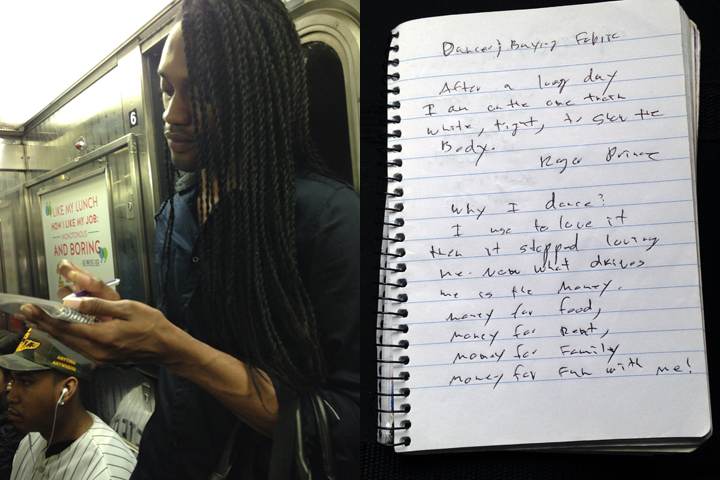 6
LIKE MY LUNCH
HOW I LIKE MY JOB:
MONOTONOUS
AND BORING
ANYTIME
ANYWHERE
Dancers Buying Fabric
After a long day
I am on the one train
white, tight, to show the
Body.
Roger Prince
Why I dance?
I use to love it
then it stopped loving
me. Now what drives
me is the money.
money for food,
money for Rent,
money for Family
money for Fun with me!